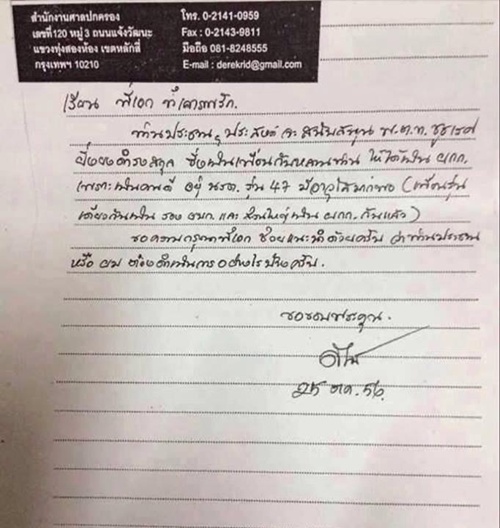 สำนักงานศาลปกครอง
เลขที่ 120 หมู่ 3 ถนนแจ้งวัฒนะ
แขวงทุ่งสองห้อง เขตหลักสี่
กรุงเทพฯ 10210
โทร. 0-2141-0959
Fax : 0-2143-9811
มือถือ 081-8248555
E-mail : derekrid@gmail.com
เรียน พี่เอก ที่เคารพรัก.
ท่านประธานฯ ประสงค์จะสนับสนุน พ.ต.ท. ชูธเรศ
ยิ่งยงดำรงสกุล ซึ่งเป็นเพื่อนกับหลานท่าน ให้ได้เป็น ผกก.
เพราะเป็นคนดี อยู่ นรต. รุ่น 47 มีอาวุโสมากพอ (เพื่อนรุ่น
เดียวกันเป็น รอง ผบก. และ ส่วนใหญ่เป็น ผกก. กันแล้ว)
ขอความกรุณาพี่เอก ช่วยแนะนำด้วยครับ ว่าท่านประธาน
หรือ ผม ต้องดำเนินการอย่างไรบ้างครับ.
ขอขอบพระคุณ.
25 ตค. 56.